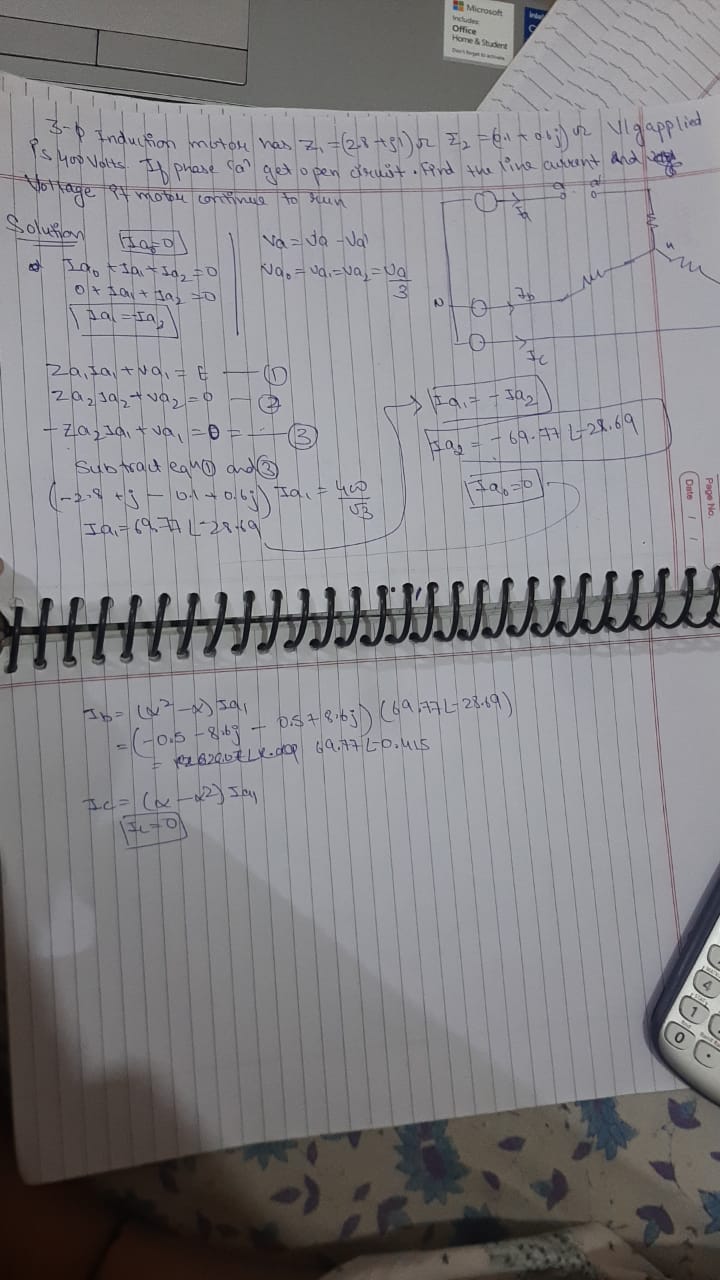 Microsoft
Includes
Office
Home & Student
Don't forget to activate
3-φ Induction motor has Z₁ = (2.8 + j1) Ω Z₂ = (0.1 + 0.6j) Ω Vlg applied
is 400 Volts. If phase 'a' get open circuit. Find the line current and
Voltage if motor continue to run
Solution
Ia₀=0
Ia₀ + Ia₁ + Ia₂ = 0
0 + Ia₁ + Ia₂ = 0
Ia₁ = -Ia₂
Va = Va - Va'
Va₀ = Va₁ = Va₂ = Va/3
Ia
a
a'
N
n
Ib
Ic
Za₁Ia₁ + Va₁ = E — ①
Za₂Ia₂ + Va₂ = 0 — ②
-Za₂Ia₁ + Va₁ = 0 = — ③
Subtract eqn ① and ③
(-2.8 + j - 0.1 + 0.6j) Ia₁ = 400/√3
Ia₁ = 69.77 ∠-28.69
Ia₁ = -Ia₂
Ia₂ = -69.77 ∠-28.69
Ia₀ = 0
Page No.
Date / /
Ib = (α² - α) Ia₁
= (-0.5 - 8.6j - 0.5 + 8.6j) (69.77 ∠-28.69)
= 69.77 ∠-0.415
Ic = (α - α²) Ia₁
Ic = 0
4
1
0
.